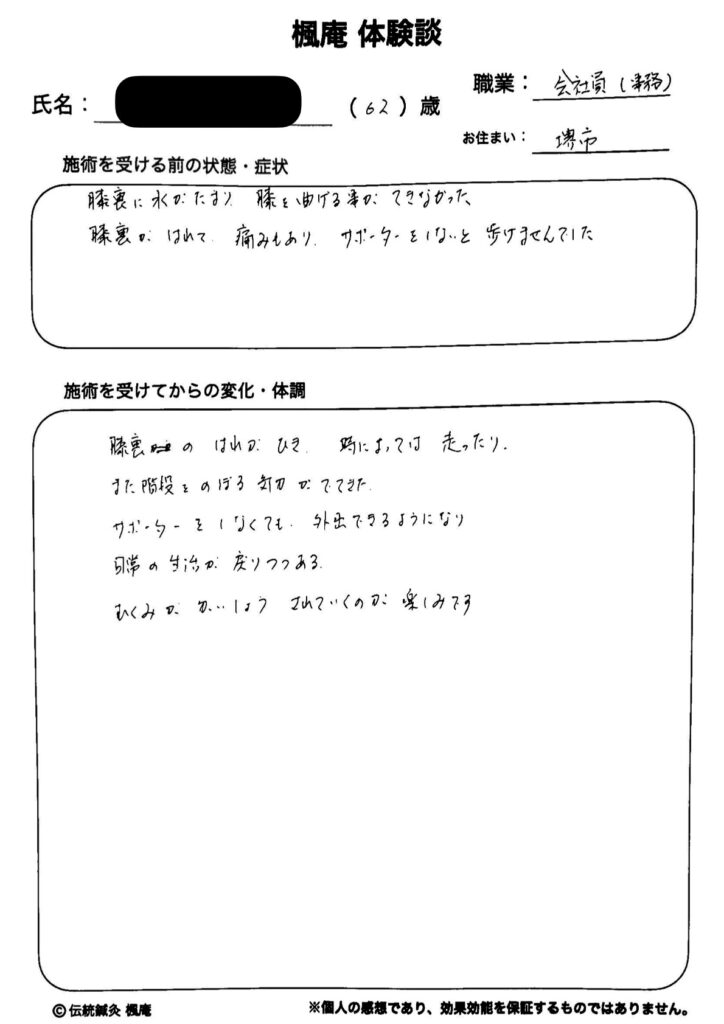 楓庵 体験談
氏名：
(62)歳
職業： 会社員(事務)
お住まい： 堺市
施術を受ける前の状態・症状
膝裏に水がたまり 膝を曲げる事が できなかった、
膝裏が はれて、痛みもあり、サポーターをしないと 歩けませんでした
施術を受けてからの変化・体調
膝裏 の はれが ひき、時によっては 走ったり、
また階段を のぼる 気力が でてきた。
サポーターを しなくても、外出できるようになり
日常の生活が 戻りつつある。
むくみが かいしょう されていくのが 楽しみです
©伝統鍼灸 楓庵
※個人の感想であり、効果効能を保証するものではありません。